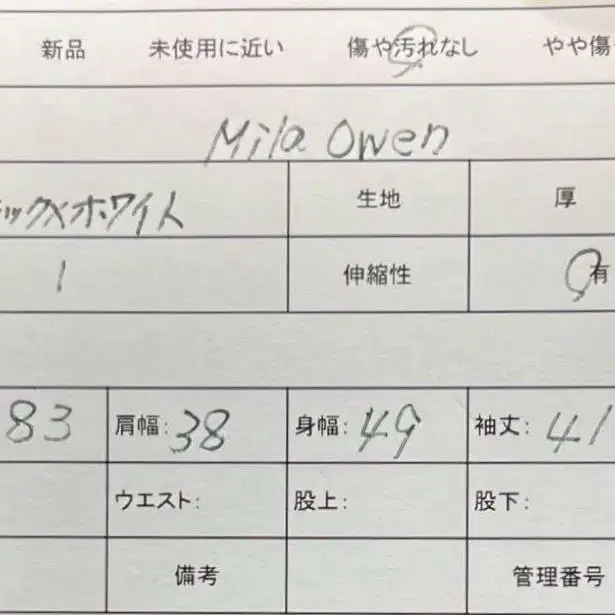 新品 未使用に近い 傷や汚れなし やや傷
Mila Owen
ックXホワイト 生地 厚
1 伸縮性 有
83 肩幅: 38 身幅: 49 袖丈: 41
ウエスト: 股上: 股下:
備考 管理番号